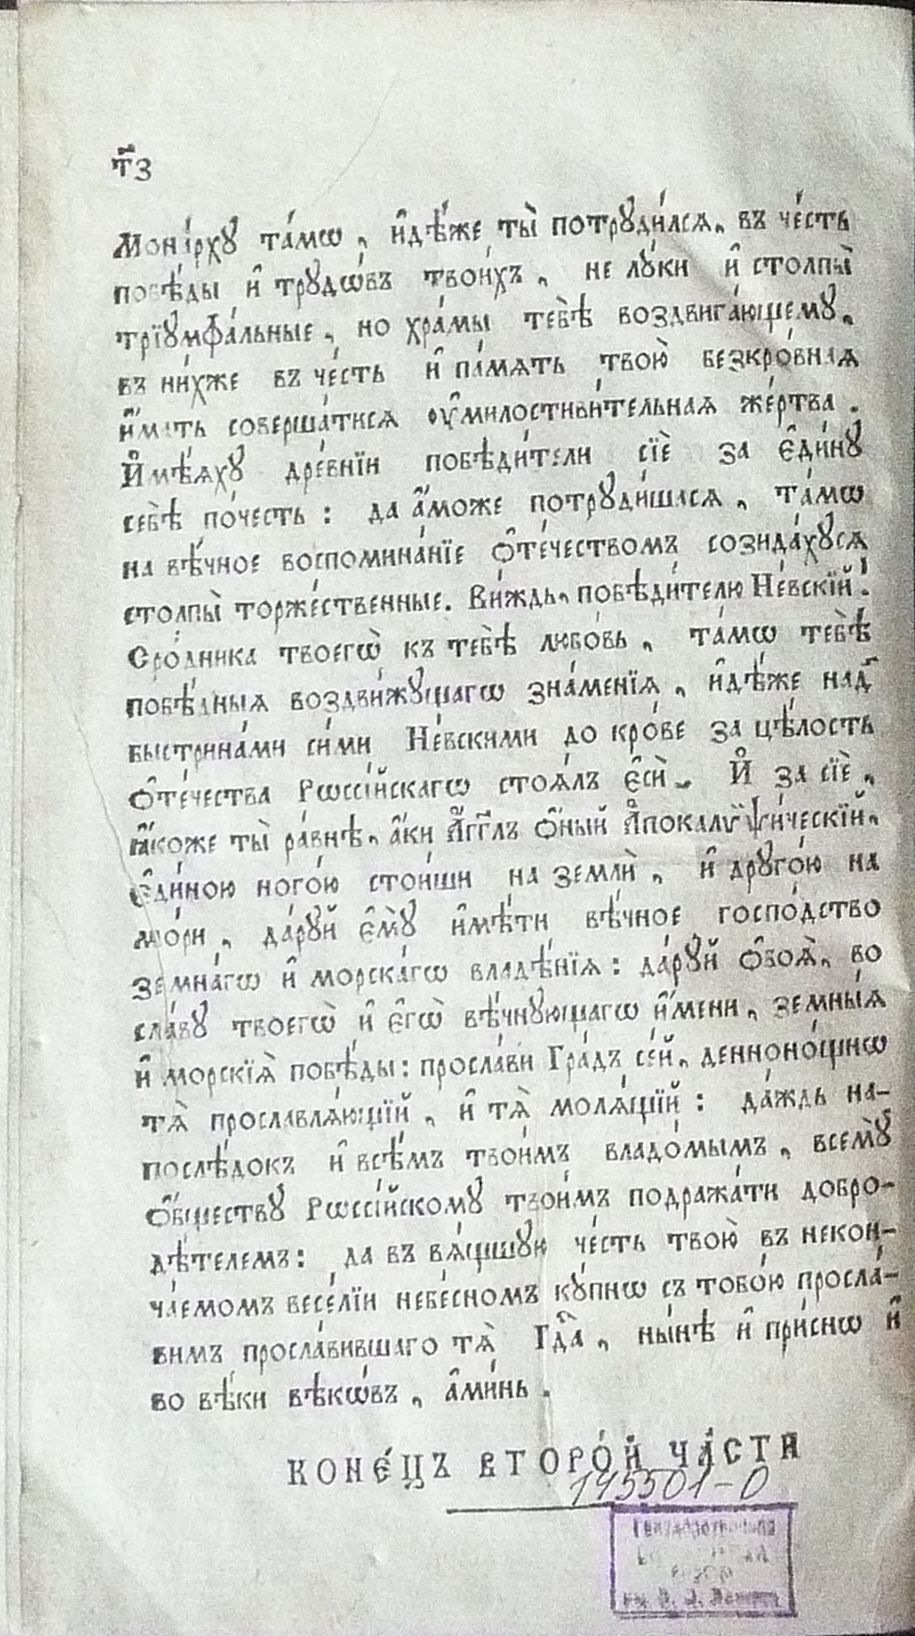 т҃з
Мона́рху та́мѡ, и҆дѣ́же ты̀ потруди́лсѧ, въ че́сть
побѣ́ды и҆ трудѡ́въ твои́хъ, не лу́ки и҆ столпы̀
трїумфа́льные, но хра́мы тебѣ̀ воздвига́ющему,
въ ни́хже въ че́сть и҆ па́мѧть твою̀ безкро́внаѧ
и҆́мать соверша́тисѧ ᲂу҆милостиви́тельнаѧ же́ртва.
И҆мѣ́ѧху дре́внїи побѣди́тели сїѐ за є҆ди́ну
себѣ̀ по́честь: да а҆́може потруди́шасѧ, та́мѡ
на вѣ́чное воспомина́нїе ѻ҆те́чествомъ созида́хусѧ
столпы̀ торже́ственные. Ви́ждь, побѣди́телю Не́вскїй!
Сро́дника твоегѡ̀ къ тебѣ̀ любо́вь, та́мѡ тебѣ̀
побѣ́дныѧ воздви́жущагѡ зна́менїѧ, и҆дѣ́же над̾
быстрина́ми си́ми Не́вскими до кро́ве за цѣ́лость
ѻ҆те́чества Рѡссі́йскагѡ стоѧ́лъ є҆сѝ. И҆ за сїѐ,
ꙗ҆́коже ты̀ ра́внѣ, а҆́ки А҆́гг҃лъ ѻ҆́ный А҆покалѷѱи́ческїй,
є҆ди́ною ного́ю стои́ши на землѝ, и҆ друго́ю на
мо́ри, да́руй є҆мꙋ̀ и҆мѣ́ти вѣ́чное госпо́дство
земна́гѡ и҆ морска́гѡ владѣ́нїѧ: да́руй ѻ҆боѧ̀, во
сла́ву твоегѡ̀ и҆ є҆гѡ̀ вѣ́чнующагѡ и҆́мени, земны́ѧ
и҆ морскі́ѧ побѣ́ды: просла́ви Гра́дъ се́й, денноно́щнѡ
тѧ̀ прославлѧ́ющїй, и҆ тѧ̀ молѧ́щїй: да́ждь на-
послѣ́докъ и҆ всѣ́мъ твои́мъ владо́мымъ, всему̀
ѻ҆́бществу Рѡссі́йскому твои́мъ подража́ти добро-
дѣ́телемъ: да въ вѧ́щшую че́сть твою̀ въ некон-
ча́емомъ весе́лїи небе́сномъ ку́пнѡ съ тобо́ю просла́-
вимъ просла́вившаго тѧ̀ Гд҇а, ны́нѣ и҆ при́снѡ и҆
во вѣ́ки вѣкѡ́въ, а҆ми́нь.
КОНЕ́ЦЪ ВТОРО́Й ЧА́СТИ
145501-0